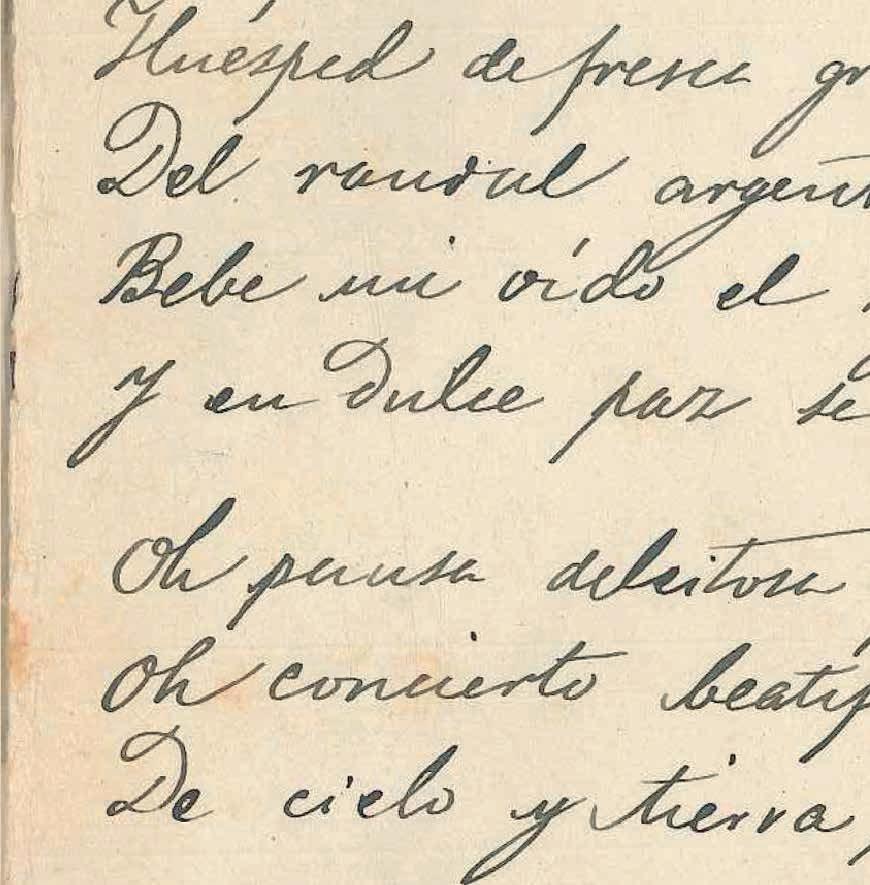 Huésped de fresca gr
Del raudal argent
Bebe mi oído el
Y en dulce paz se
Oh pausa deleitosa
Oh concierto beatíf
De cielo y tierra,